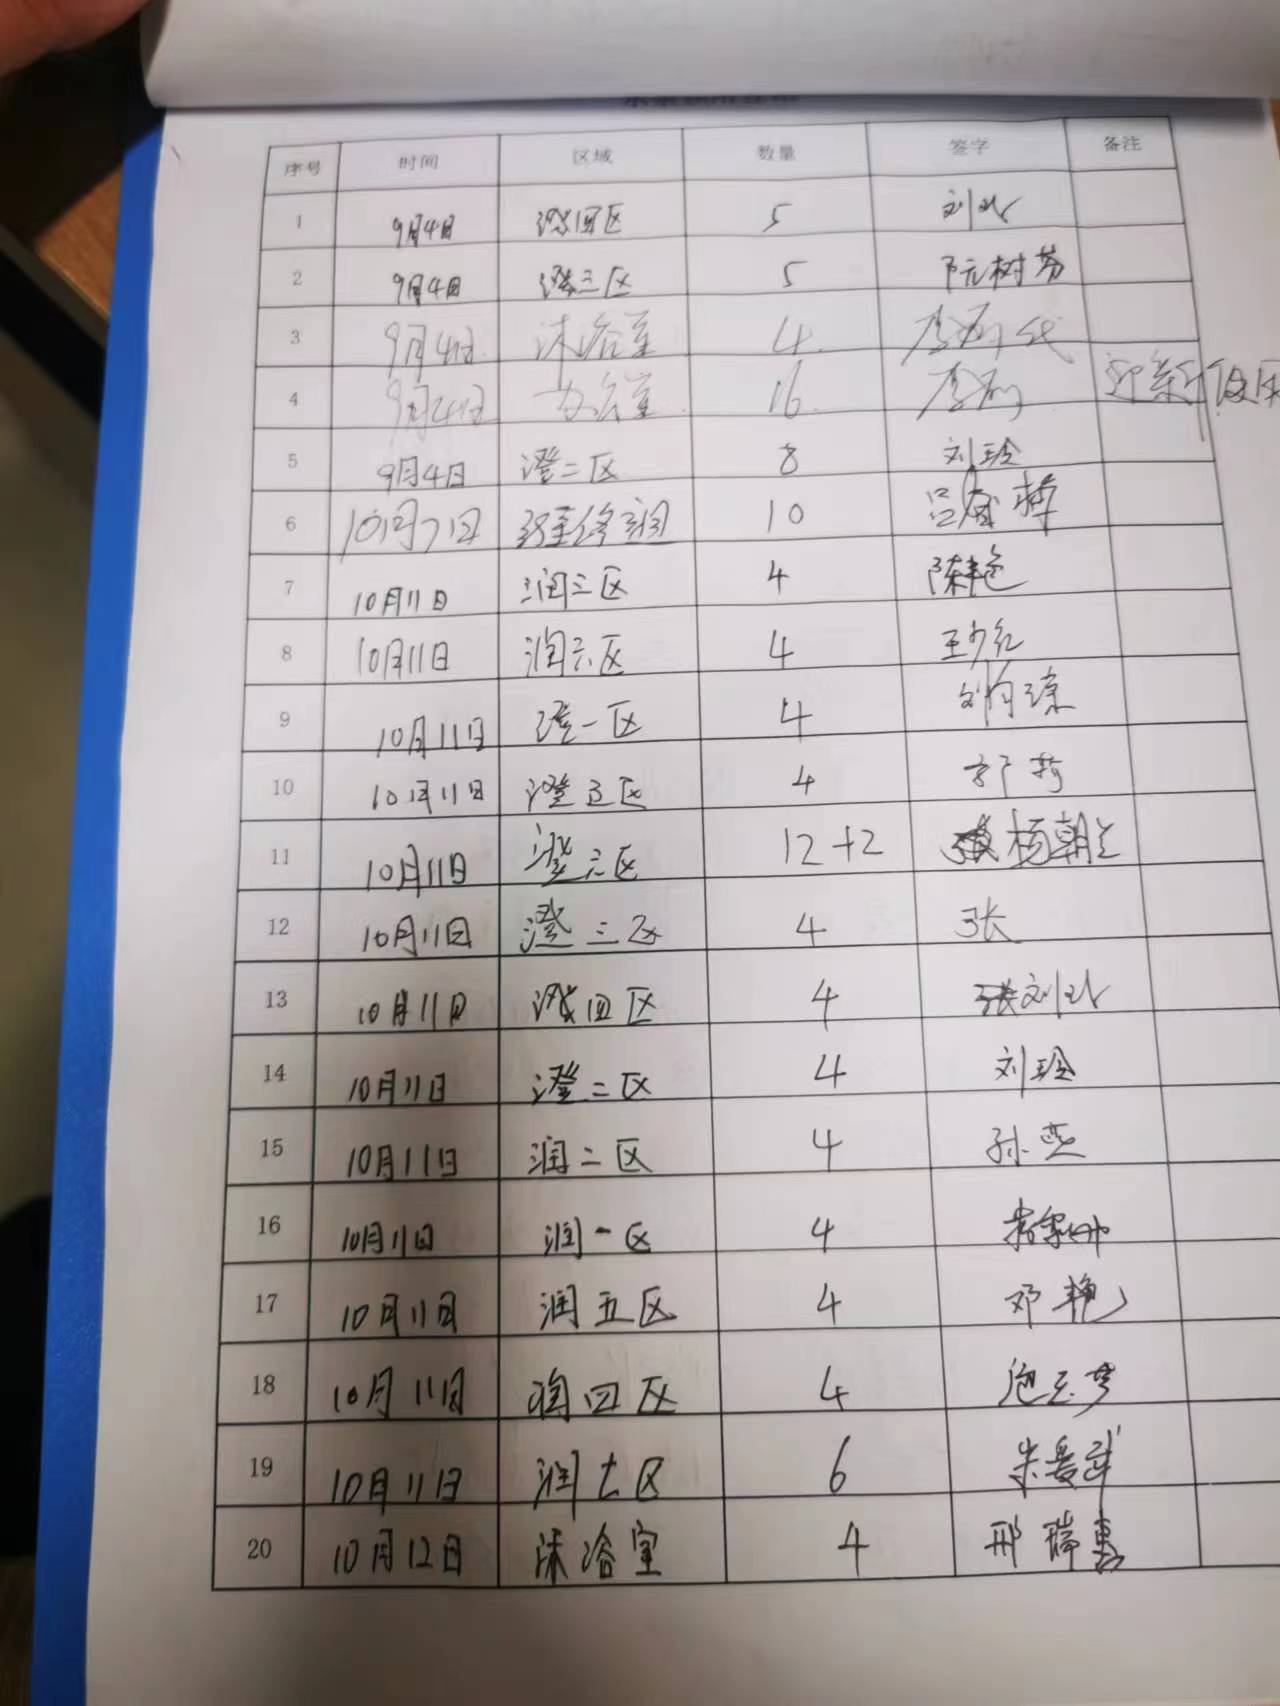 序号 时间 区域 数量 签字 备注
1 9月4日 澄四区 5 刘
2 9月4日 澄三区 5 阮树芬
3 9月4日 沐浴室 4
4 9月4日 办公室 16 迎新使用
5 9月4日 澄二区 8 刘玲
6 10月7日 10
7 10月11日 润三区 4 陈艳
8 10月11日 润六区 4 王少红
9 10月11日 澄一区 4
10 10月11日 澄五区 4
11 10月11日 澄六区 12+2 杨朝兰
12 10月11日 澄三区 4 张
13 10月11日 澄四区 4 刘
14 10月11日 澄二区 4 刘玲
15 10月11日 润二区 4 孙芝
16 10月11日 润一区 4
17 10月11日 润五区 4 邓艳
18 10月11日 润四区 4
19 10月11日 润七区 6 朱爱武
20 10月12日 沐浴室 4 邢瑞惠